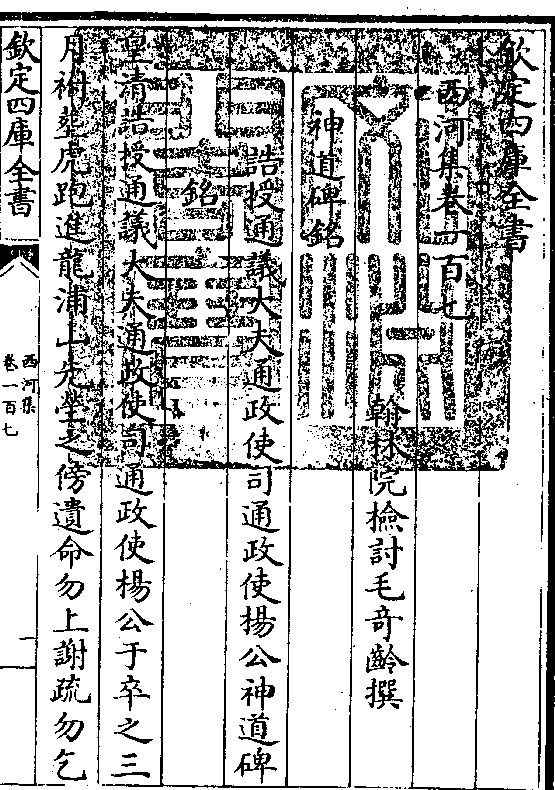 欽定四庫全書
西河集卷一百七
翰林院檢討毛奇齡撰
神道碑銘
誥授通議大夫通政使司通政使楊公神道碑
銘
皇清誥授通議大夫通政使司通政使楊公于卒之三
月祔塟虎跑進龍浦山先塋之傍遺命勿上謝疏勿乞
欽定四庫全書
西河集
卷一百七
一